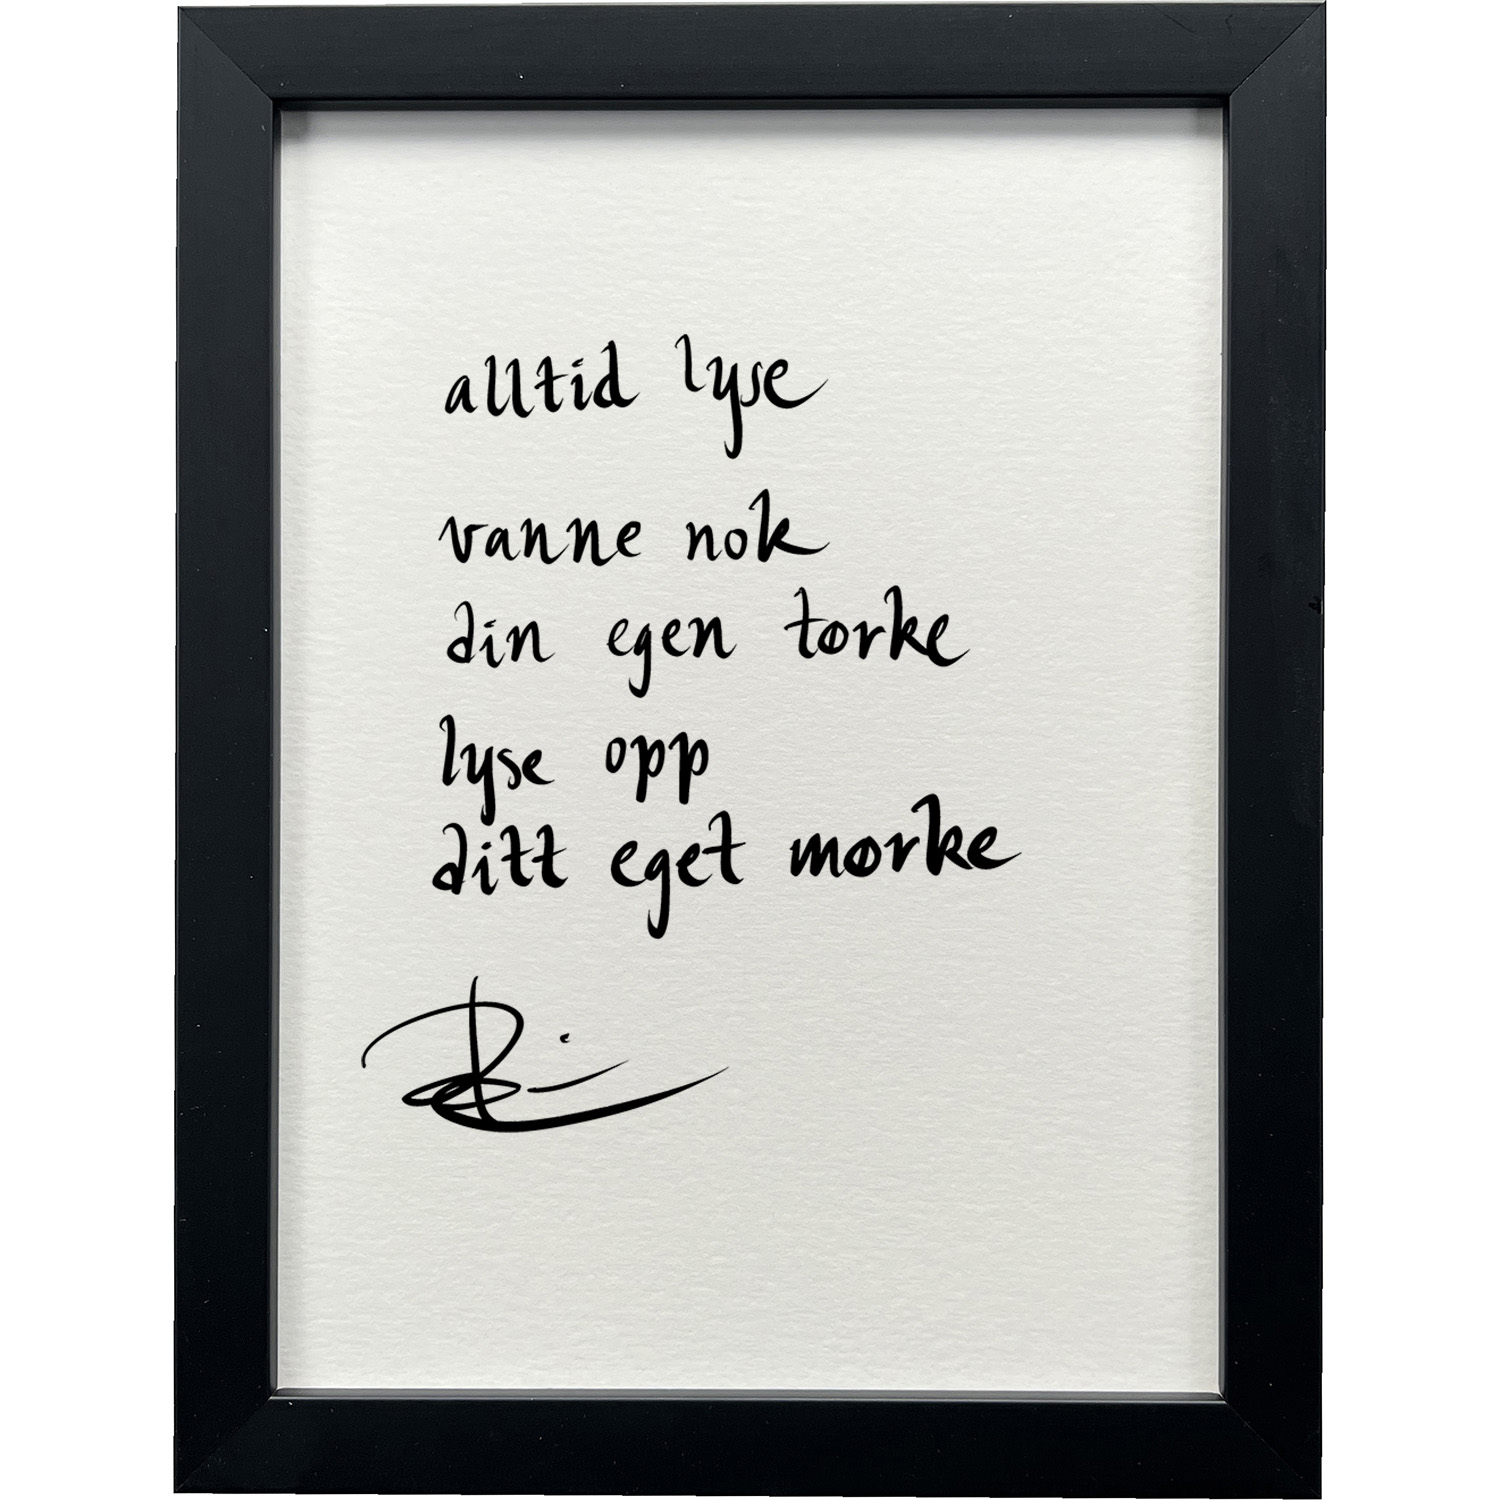 alltid lyse
vanne nok
din egen tørke
lyse opp
ditt eget mørke